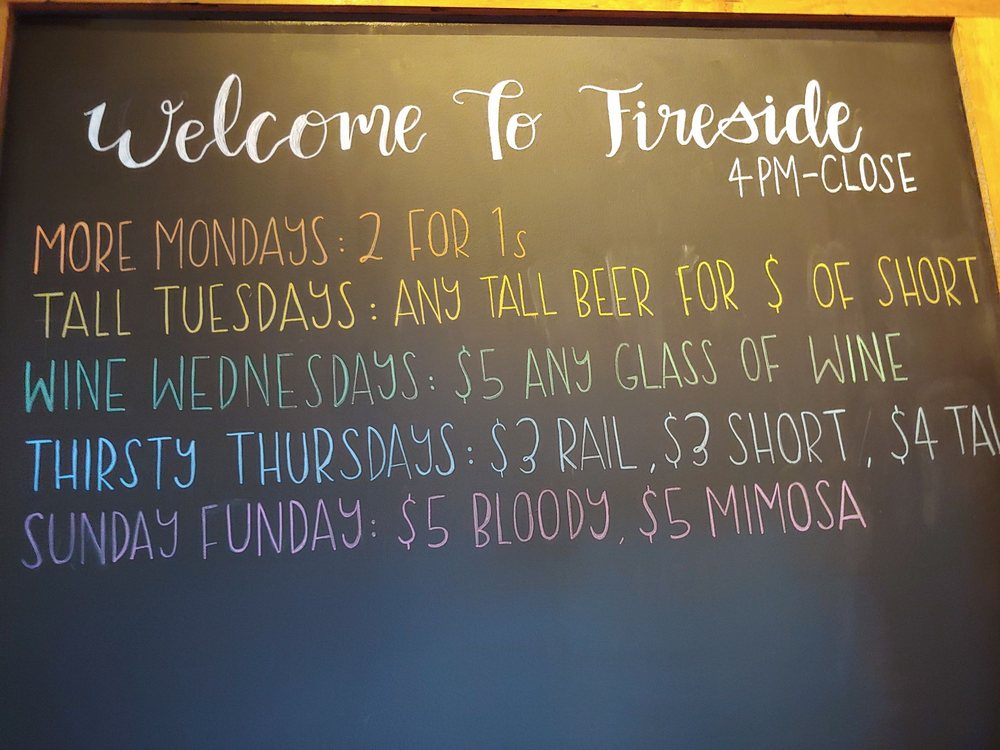 Welcome To Fireside
4PM-CLOSE
MORE MONDAYS: 2 FOR 1s
TALL TUESDAYS: ANY TALL BEER FOR $ OF SHORT
WINE WEDNESDAYS: $5 ANY GLASS OF WINE
THIRSTY THURSDAYS: $3 RAIL, $3 SHORT, $4
SUNDAY FUNDAY: $5 BLOODY, $5 MIMOSA